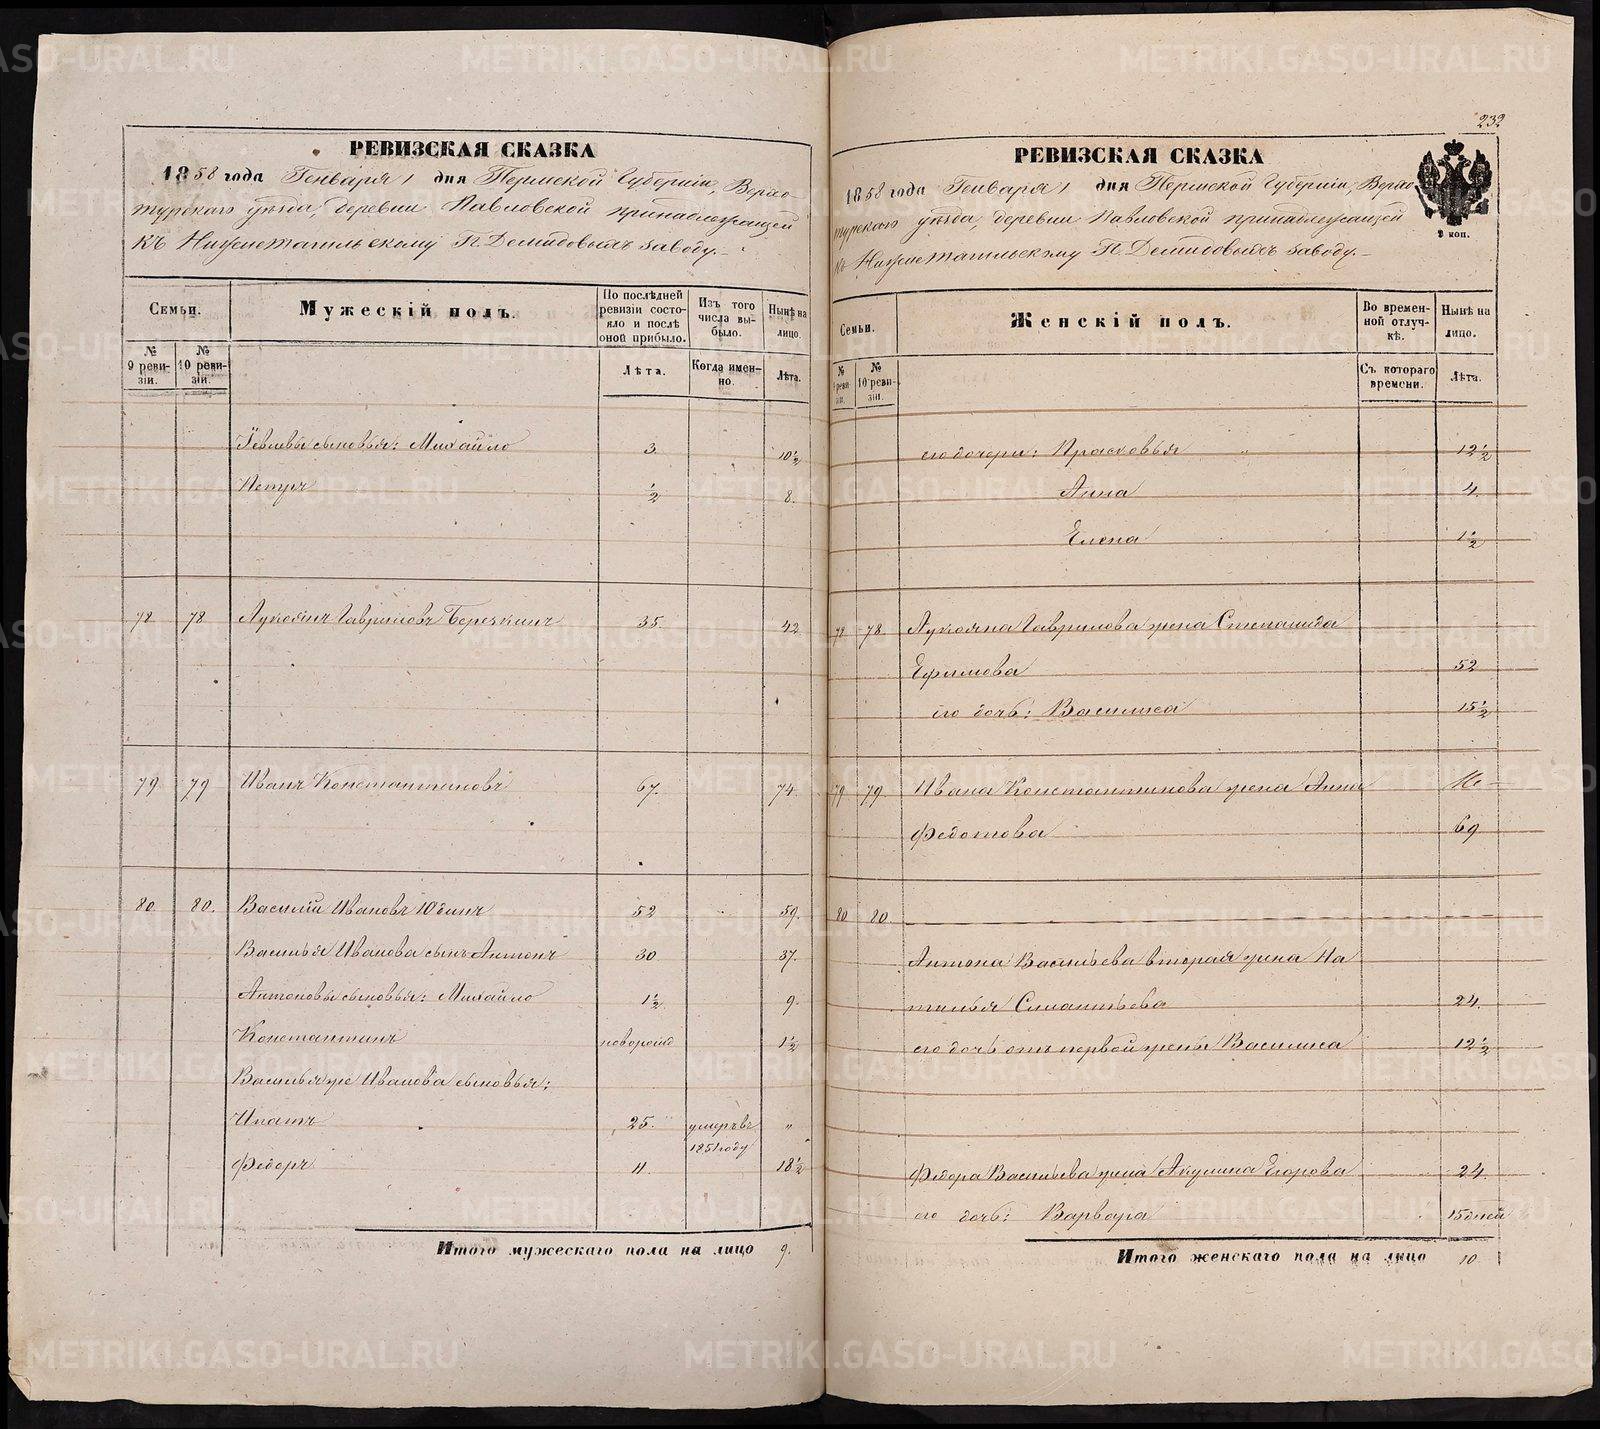 232
РЕВИЗСКАЯ СКАЗКА
1858 года Генваря 1 дня Пермской Губернiи, Верхо
турскаго уѣзда, деревни Павловской принадлежащей
къ Нижнетагильскому Гг. Демидовыхъ заводу.
Семьи.
Мужескiй полъ.
По послѣдней ревизiи состояло и послѣ оной прибыло.
Изъ того числа выбыло.
Нынѣ на лицо.
№ 9 ревизiи.
№ 10 ревизiи.
Лѣта.
Когда именно.
Лѣта.
сыновья: Михайло 3. 10½
Петръ ½ 8.
78 78 Лукоянъ Гавриловъ Березкинъ 35. 42
79 79 Иванъ Константиновъ 67. 74.
80 80. Василiй Ивановъ Юдинъ 52 59.
Василья Иванова сынъ Антонъ 30 37.
Антоновы сыновья: Михайло 1½ 9.
Константинъ новорожд 1½
Василья же Иванова сыновья:
Ипатъ 25. умеръ въ 1851 году „
Федоръ 11. 18½
Итого мужескаго пола на лицо 9.
РЕВИЗСКАЯ СКАЗКА
1858 года Генваря 1 дня Пермской Губернiи, Верхо
турскаго уѣзда, деревни Павловской принадлежащей
къ Нижнетагильскому Гг. Демидовыхъ заводу.
Семьи.
Женскiй полъ.
Во временной отлучкѣ.
Нынѣ на лицо.
№ 9 ревизiи.
№ 10 ревизiи.
Съ котораго времени.
Лѣта.
его дочери: Прасковья 12½
Анна 4.
Елена 1½
78 78 Лукояна Гаврилова жена Степанида
Ефимова 52
его дочь: Василиса 15½
79 79 Ивана Константинова жена Анна
Федотова 69
80 80
Антона Васильева вторая жена На
талья 24.
его дочь отъ первой жены Василиса 12½
Федора Васильева жена Акулина Егорова 24.
его дочь: Варвара 15 дней
Итого женскаго пола на лицо 10
METRIKI.GASO-URAL.RU